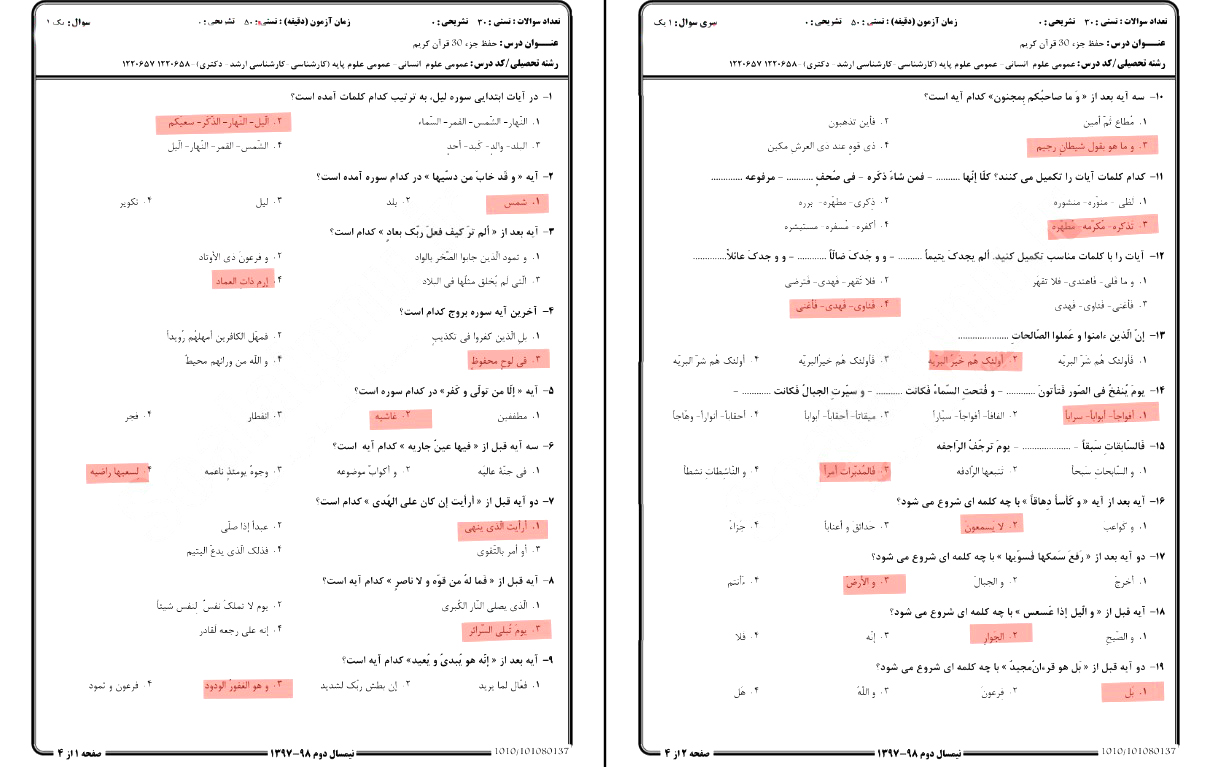 تعداد سوالات : تستی : ۳۰ تشریحی : ۰ زمان آزمون (دقیقه) : تستی : ۵۰ تشریحی : ۰ سری سوال : ۱ یک
عنـــوان درس : حفظ جزء 30 قرآن کریم
رشته تحصیلی/کد درس : عمومی علوم انسانی- عمومی علوم پایه (کارشناسی -کارشناسی ارشد - دکتری) ۱۲۲۰۶۵۸- ۱۲۲۰۶۵۷
۱۰- سه آیه بعد از « وَ ما صاحبُکم بِمجنون» کدام آیه است؟
۱. مُطاعٍ ثَمَّ أمین ۲. فأین تذهبون
۳. و ما هو بقول شیطانٍ رجیم ۴. ذی قوهٍ عند ذی العرشِ مکین
۱۱- کدام کلمات آیات را تکمیل می کنند؟ کلّا إنّها .......... - فمن شاءَ ذکَره - فی صُحفٍ ........... - مرفوعه .............
۱. لظی - منوّره- منشوره ۲. ذکری- مطهّره- برره
۳. تذکره- مُکرّمه- مُطهّره ۴. أکفره- مُسفره- مستبشره
۱۲- آیات را با کلمات مناسب تکمیل کنید. ألم یجدکَ یتیماً .......... - و وَجَدکَ ضالّاً ............ - و و جدکَ عائلاً...............
۱. و ما قلی- فاهتدی- فلا تقهَر ۲. فلا تَقهر- فهدی- فترضی
۳. فأغنی- فئاوی- فهدی ۴. فئاوی- فَهدی- فأغنی
۱۳- إنّ الّذین ءامنوا و عَملوا الصّالحاتِ .....................
۱. فأولئک هُم شَرّ البریّه ۲. أولئک هُم خَیرُ البریّه ۳. فأولئک هم خیرُالبریّه ۴. أولئک هُم شَرّ البریّه
۱۴- یومَ یُنفخُ فی الصّور فَتأتونَ ............ - و فُتحتِ السّماءُ فَکانَت ........... - و سیّرتِ الجِبالُ فَکانَت ............ -
۱. أفواجاً- أبواباً- سراباً ۲. الفافاً- أفواجاً- سیّاراً ۳. میقاتاً- أحقاباً- أبواباً ۴. أحقاباً- أنواراً- وهّاجاً
۱۵- فَالسّابقاتِ سَبقاً - .................... - یومَ تَرجُفُ الرّاجفه
۱. و السّابحاتِ سَبحاً ۲. تَتبعها الرّادفَه ۳. فَالمدبّرات أمراً ۴. و النّاشِطاتِ نشطاً
۱۶- آیه بعد از آیه « و کأساً دِهاقاً » با چه کلمه ای شروع می شود؟
۱. و کواعبَ ۲. لا یَسمعونَ ۳. حدائقَ و أعناباً ۴. جَزاءً
۱۷- دو آیه بعد از « رَفعَ سَمکها فَسوّیها » با چه کلمه ای شروع می شود؟
۱. أخرجَ ۲. و الجبالَ ۳. و الأرضَ ۴. ءأنتم
۱۸- آیه قبل از « و الّیل إذا عَسعس » با چه کلمه ای شروع می شود؟
۱. و الصّبح ۲. الجَوارِ ۳. إنّه ۴. فلا
۱۹- دو آیه قبل از « بَل هو قرءانٌ مجیدٌ » با چه کلمه ای شروع می شود؟
۱. بَل ۲. فرعونَ ۳. و اللّهُ ۴. هَل
صفحه ۲ از ۴ نیمسال دوم ۹۸-۱۳۹۷ 1010/101080137
تعداد سوالات : تستی : ۳۰ تشریحی : ۰ زمان آزمون (دقیقه) : تستی : ۵۰ تشریحی : ۰ سوال : یک ۱
عنـــوان درس : حفظ جزء 30 قرآن کریم
رشته تحصیلی/کد درس : عمومی علوم انسانی- عمومی علوم پایه (کارشناسی -کارشناسی ارشد - دکتری) ۱۲۲۰۶۵۸- ۱۲۲۰۶۵۷
۱- در آیات ابتدایی سوره لیل، به ترتیب کدام کلمات آمده است؟
۱. النّهار- الشّمس- القمر- السّماء ۲. الّیل- النّهار- الذّکر- سعیکم
۳. البلد- والدٍ- کَبد- أحدٍ ۴. الشّمس- القمر- النّهار- الّیل
۲- آیه « و قَد خابَ من دسّیها » در کدام سوره آمده است؟
۱. شمس ۲. بلد ۳. لیل ۴. تکویر
۳- آیه بعد از « ألم ترَ کیف فعلَ ربّک بعادٍ » کدام است؟
۱. و ثمود الّذین جابوا الصّخر بالواد ۲. و فرعونَ ذی الأوتاد
۳. الّتی لَم یُخلق مثلُها فی البلاد ۴. إرم ذاتِ العماد
۴- آخرین آیه سوره بروج کدام است؟
۱. بلِ الّذین کفروا فی تکذیبٍ ۲. فمهّل الکافرین أمهلهُم رُویداً
۳. فی لوحٍ محفوظٍ ۴. و اللّه من ورائهم محیطٌ
۵- آیه « إلّا من تولّی و کَفر» در کدام سوره است؟
۱. مطففین ۲. غاشیه ۳. انفطار ۴. فجر
۶- سه آیه قبل از « فیها عینٌ جاریه » کدام آیه است؟
۱. فی جنّهٍ عالیَه ۲. و أکوابٌ موضوعه ۳. وجوهٌ یومئذٍ ناعمه ۴. لِسعیها راضیه
۷- دو آیه قبل از « أرأیت إن کان علی الهُدی » کدام است؟
۱. أرأیتَ الّذی ینهی ۲. عبداً إذا صلّی
۳. أو أمر بالتّقوی ۴. فذلک الّذی یدعّ الیتیم
۸- آیه قبل از « فَما لَهُ من قوّه و لا ناصرٍ » کدام آیه است؟
۱. الّذی یصلی النّار الکُبری ۲. یوم لا تملکُ نفسٌ لِنفس شیئاً
۳. یومَ تُبلی السّرائر ۴. إنه علی رجعه لقادر
۹- آیه بعد از « إنّه هو یُبدیُ و یُعید» کدام آیه است؟
۱. فعّال لما یرید ۲. إن بطش ربّک لشدید ۳. و هو الغفورُ الودود ۴. فرعون و ثمود
صفحه ۱ از ۴ نیمسال دوم ۹۸-۱۳۹۷ 1010/101080137